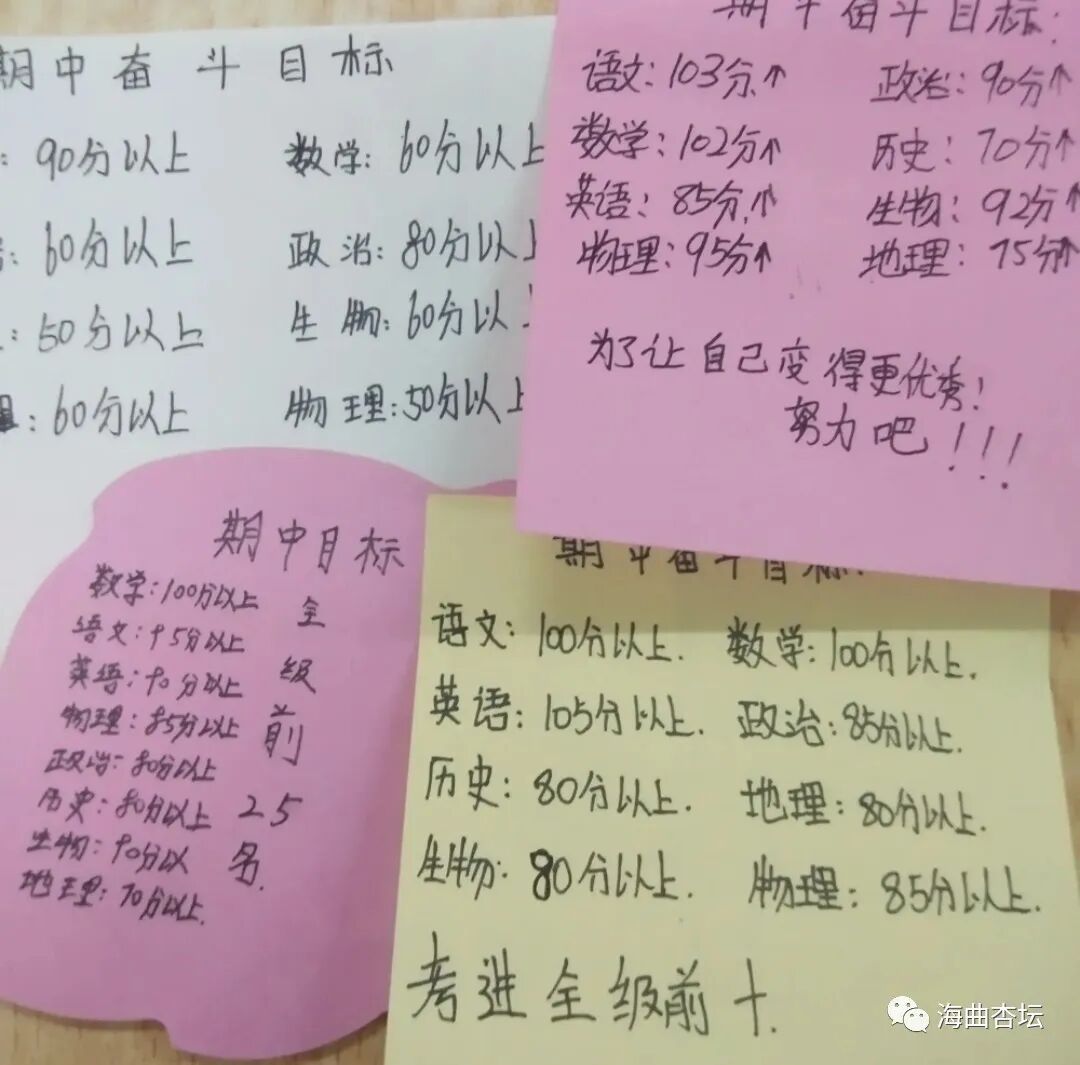 期中奋斗目标
: 90分以上 数学: 60分以上
: 60分以上 政治: 80分以上
: 50分以上 生物: 60分以
理: 60分以上 物理: 50分以上
期中奋斗目标:
语文: 103分↑ 政治: 90分↑
数学: 102分↑ 历史: 70分↑
英语: 85分↑ 生物: 92分↑
物理: 95分↑ 地理: 75分↑
为了让自己变得更优秀!
努力吧!!!
期中目标
数学: 100分以上
语文: 95分以上
英语: 90分以上
物理: 85分以上
政治: 80分以上
历史: 80分以上
生物: 90分以
地理: 70分以上.
全级前25名.
期中奋斗目标:
语文: 100分以上. 数学: 100分以上.
英语: 105分以上. 政治: 85分以上.
历史: 80分以上. 地理: 80分以上.
生物: 80分以上. 物理: 85分以上.
考进全级前十.
海曲杏坛